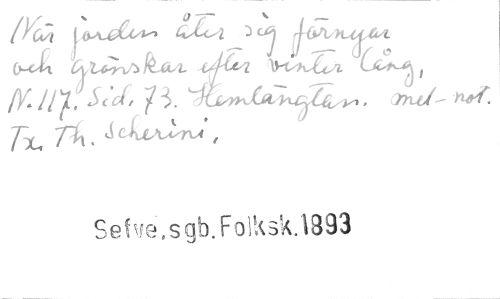 När jorden åter sig förnyar
och grönskar efter vinter lång,
N.117. Sid. 73. Hemlängtan. mel-not.
Tx. Th. Scherini.
Sefve,sgb.Folksk.1893